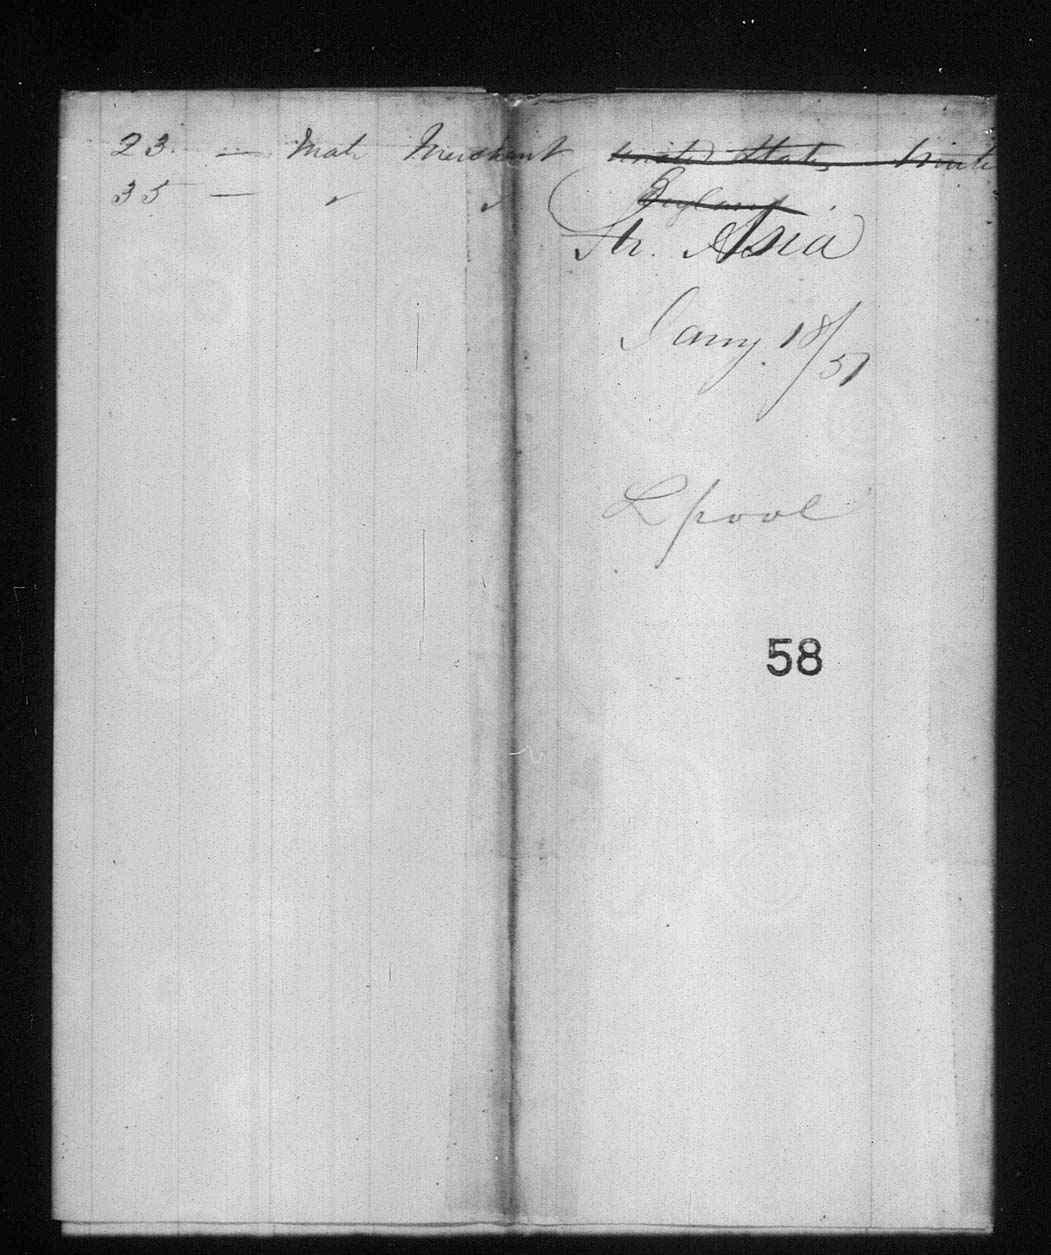 23 — Male Merchant United States Unite
35 — ✓ ✓ England
Str. Asia
Jany. 18/51
Lpool
58